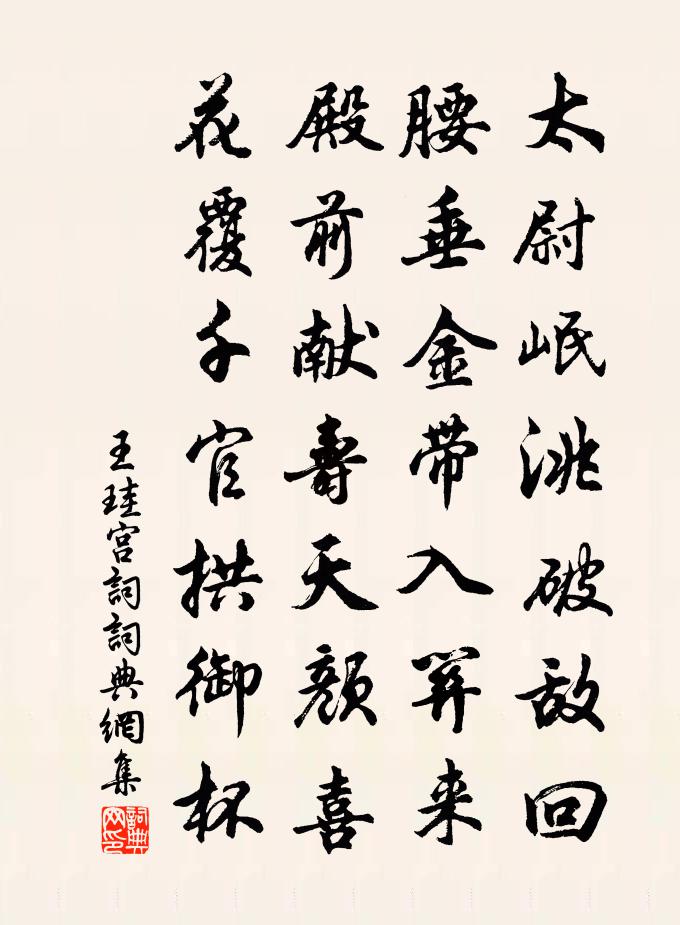 太尉岷洮破敌回
腰垂金带入筭来
殿前献壽天颜喜
花覆千官拱御杯
王珪宫詞詞典網集
詞典
网印